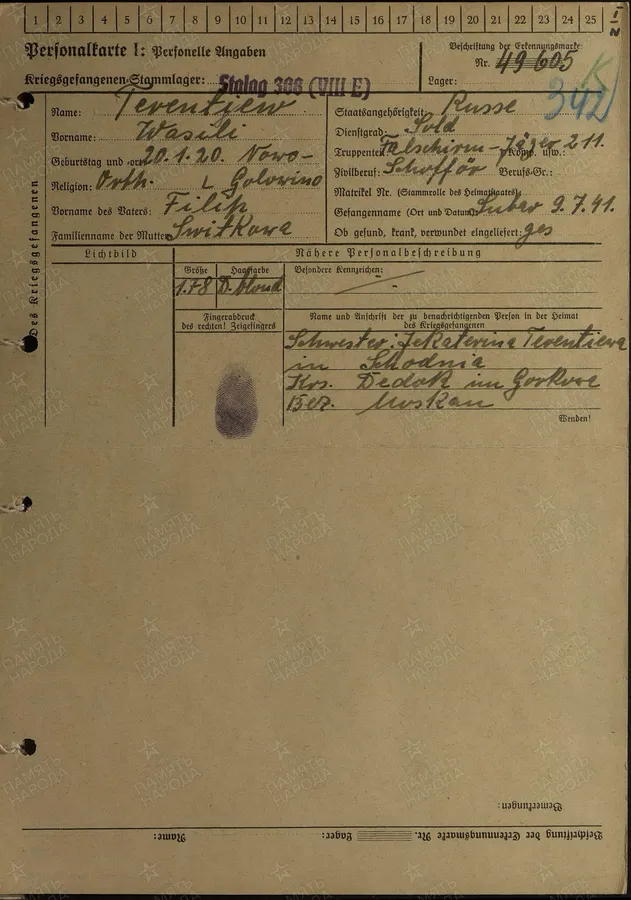 1 2 3 4 5 6 7 8 9 10 11 12 13 14 15 16 17 18 19 20 21 22 23 24 25
Personalkarte I: Personelle Angaben
Kriegsgefangenen-Stammlager: Stalag 308 (VIII E)
Beschriftung der Erkennungsmarke
Nr. 49605
Lager:
392
Des Kriegsgefangenen
Name: Terentiew
Vorname: Wasili
Geburtstag und -ort 20.1.20. Nowo-
Religion: Orth. Golowino
Vorname des Vaters: Filip
Familienname der Mutter: Switkowa
Staatsangehörigkeit: Russe
Dienstgrad: Sold
Truppenteil: Falschirm-Jäger 211. Komp. usw.:
Zivilberuf: Schofför Berufs-Gr.:
Matrikel Nr. (Stammrolle des Heimatstaates):
Gefangennahme (Ort und Datum): 9.7.41.
Ob gesund, krank, verwundet eingeliefert: ges
Lichtbild
Nähere Personalbeschreibung
Größe Haarfarbe
1.78 D.blond
Besondere Kennzeichen:
Fingerabdruck
des rechten! Zeigefingers
Name und Anschrift der zu benachrichtigenden Person in der Heimat
des Kriegsgefangenen
Schwester: Jekaterina Terentiewa
in Schodnia
Krs. Dedok im Gorkowa
Bez. Moskau
Wenden!
Bemerkungen:
Beschriftung der Erkennungsmarke Nr. Lager: Name:
ПАМЯТЬ
НАРОДА